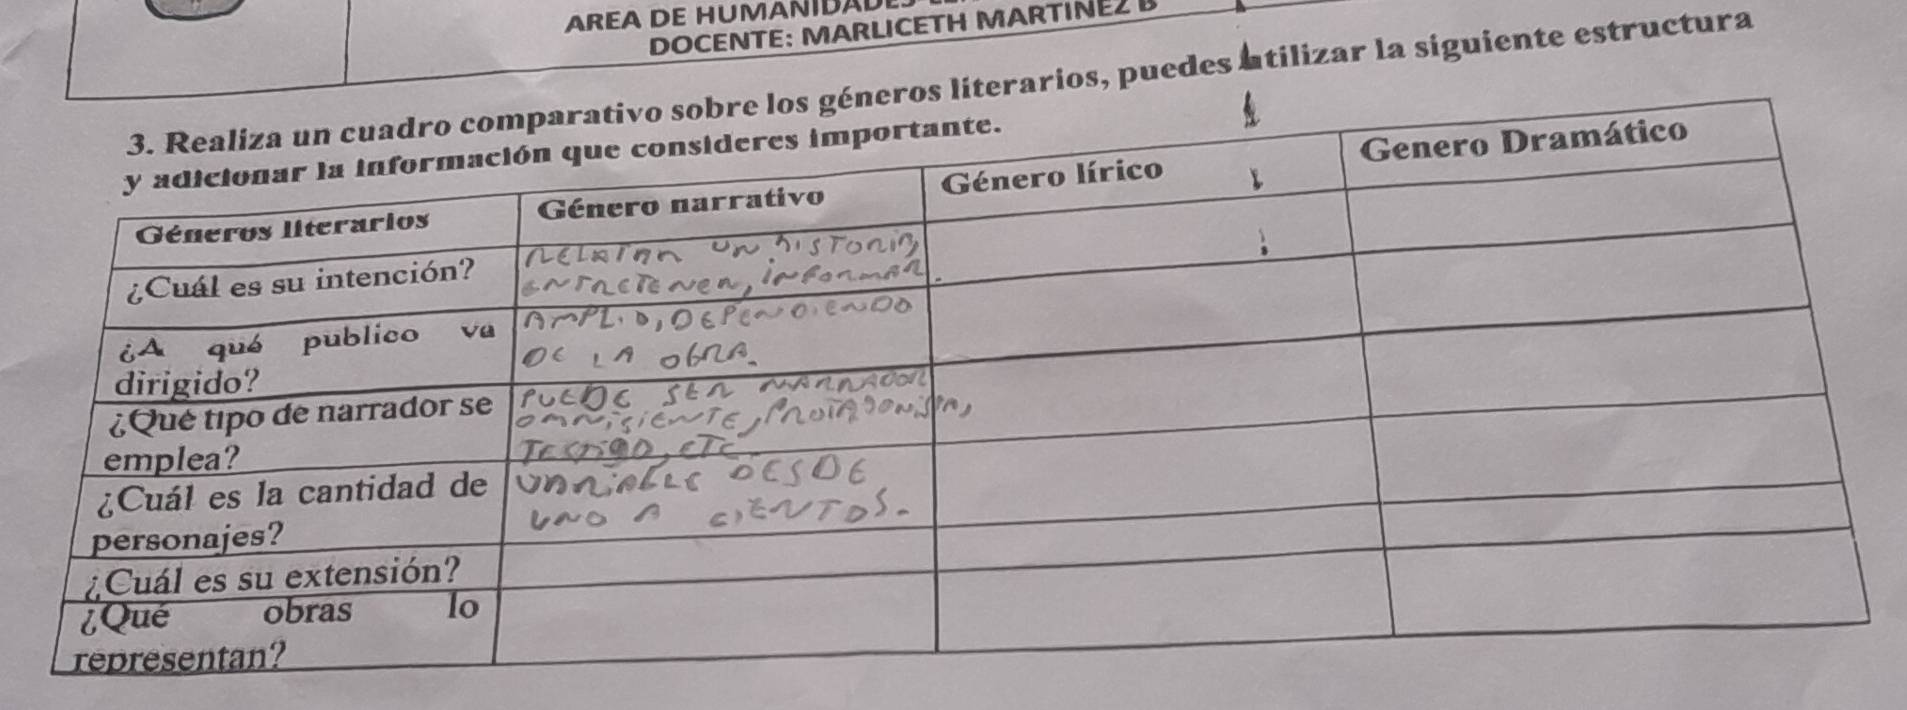 AREA DE HUMANIDADES
DOCENTE: MARLICETH MARTINEZ B
3. Realiza un cuadro comparativo sobre los géneros literarios, puedes utilizar la siguiente estructura
y adicionar la información que consideres importante.
Géneros literarios
Género narrativo
Género lírico
Genero Dramático
¿Cuál es su intención?
RELATAR UN HISTORIA,
ENTRETENER, INFORMAR.
¿A qué publico va
dirigido?
AMPLIO, DEPENDIENDO
DE LA OBRA.
¿Qué tipo de narrador se
emplea?
PUEDE SER NARRADOR
OMNISIENTE, PROTAGONISTA,
TESTIGO, ETC.
¿Cuál es la cantidad de
personajes?
VARIABLE DESDE
UNO A CIENTOS.
¿Cuál es su extensión?
¿Qué obras lo
representan?